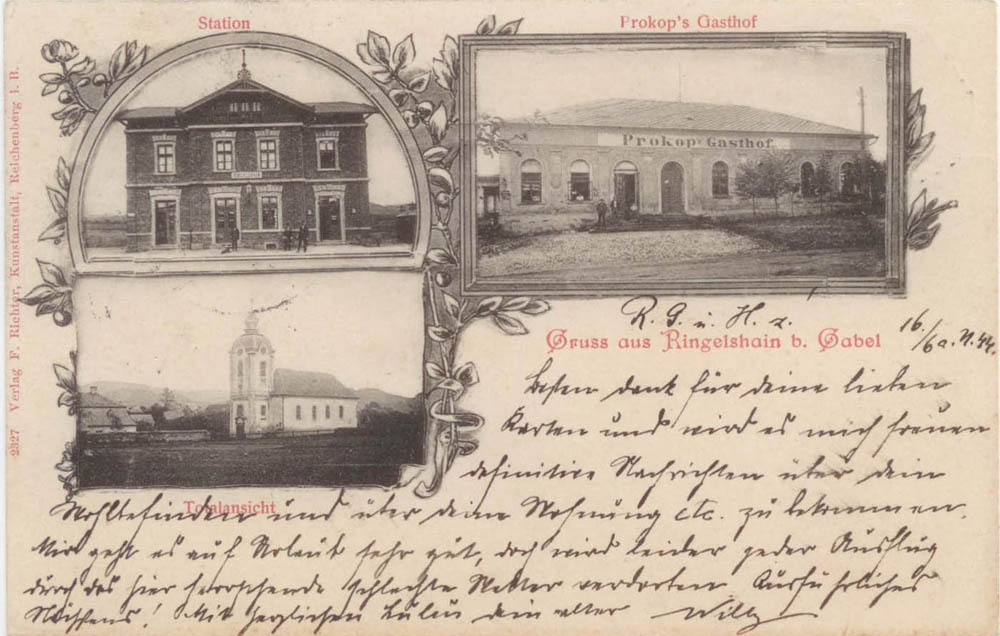 Station
Prokop's Gasthof
Prokop's Gasthof.
2327 Verlag F. Richter, Kunstanstalt, Reichenberg i. B.
R. G. u. H. z.
Gruss aus Ringelshain b. Gabel
16./6
Besten dank für deine lieben
Karten und wird es mich freuen
definitive Nachrichten über dein
Totalansicht
Wohlbefinden und über deine Wohnung etc. zu bekommen.
Mir geht es auf Urlaub sehr gut, doch wird leider jeder Ausflug
durch das hier herrschende schlechte Wetter verdorben Ausführliches
Nächstens! Mit herzlichen dein alter Willy